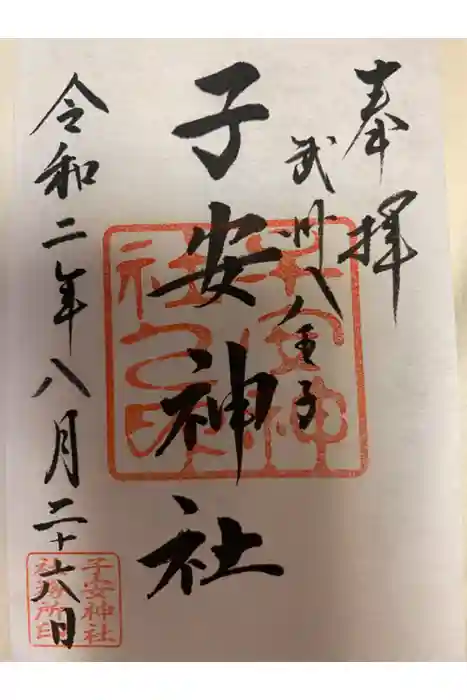 奉拝
武州八王子
子安神社
子安神社之印
令和二年八月二十六日
子安神社
社務所印